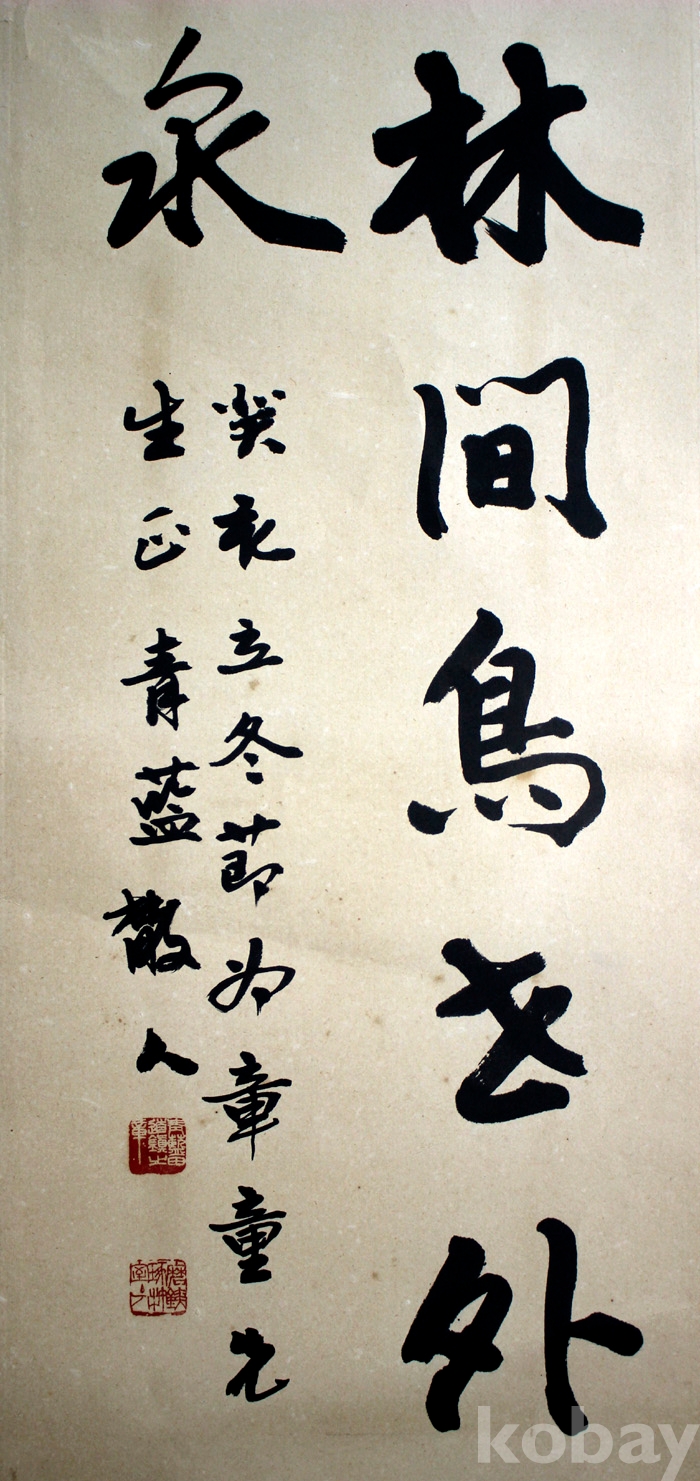 林間鳥世外
泉
癸亥立冬節为章童先
生正青藍散人
kobay